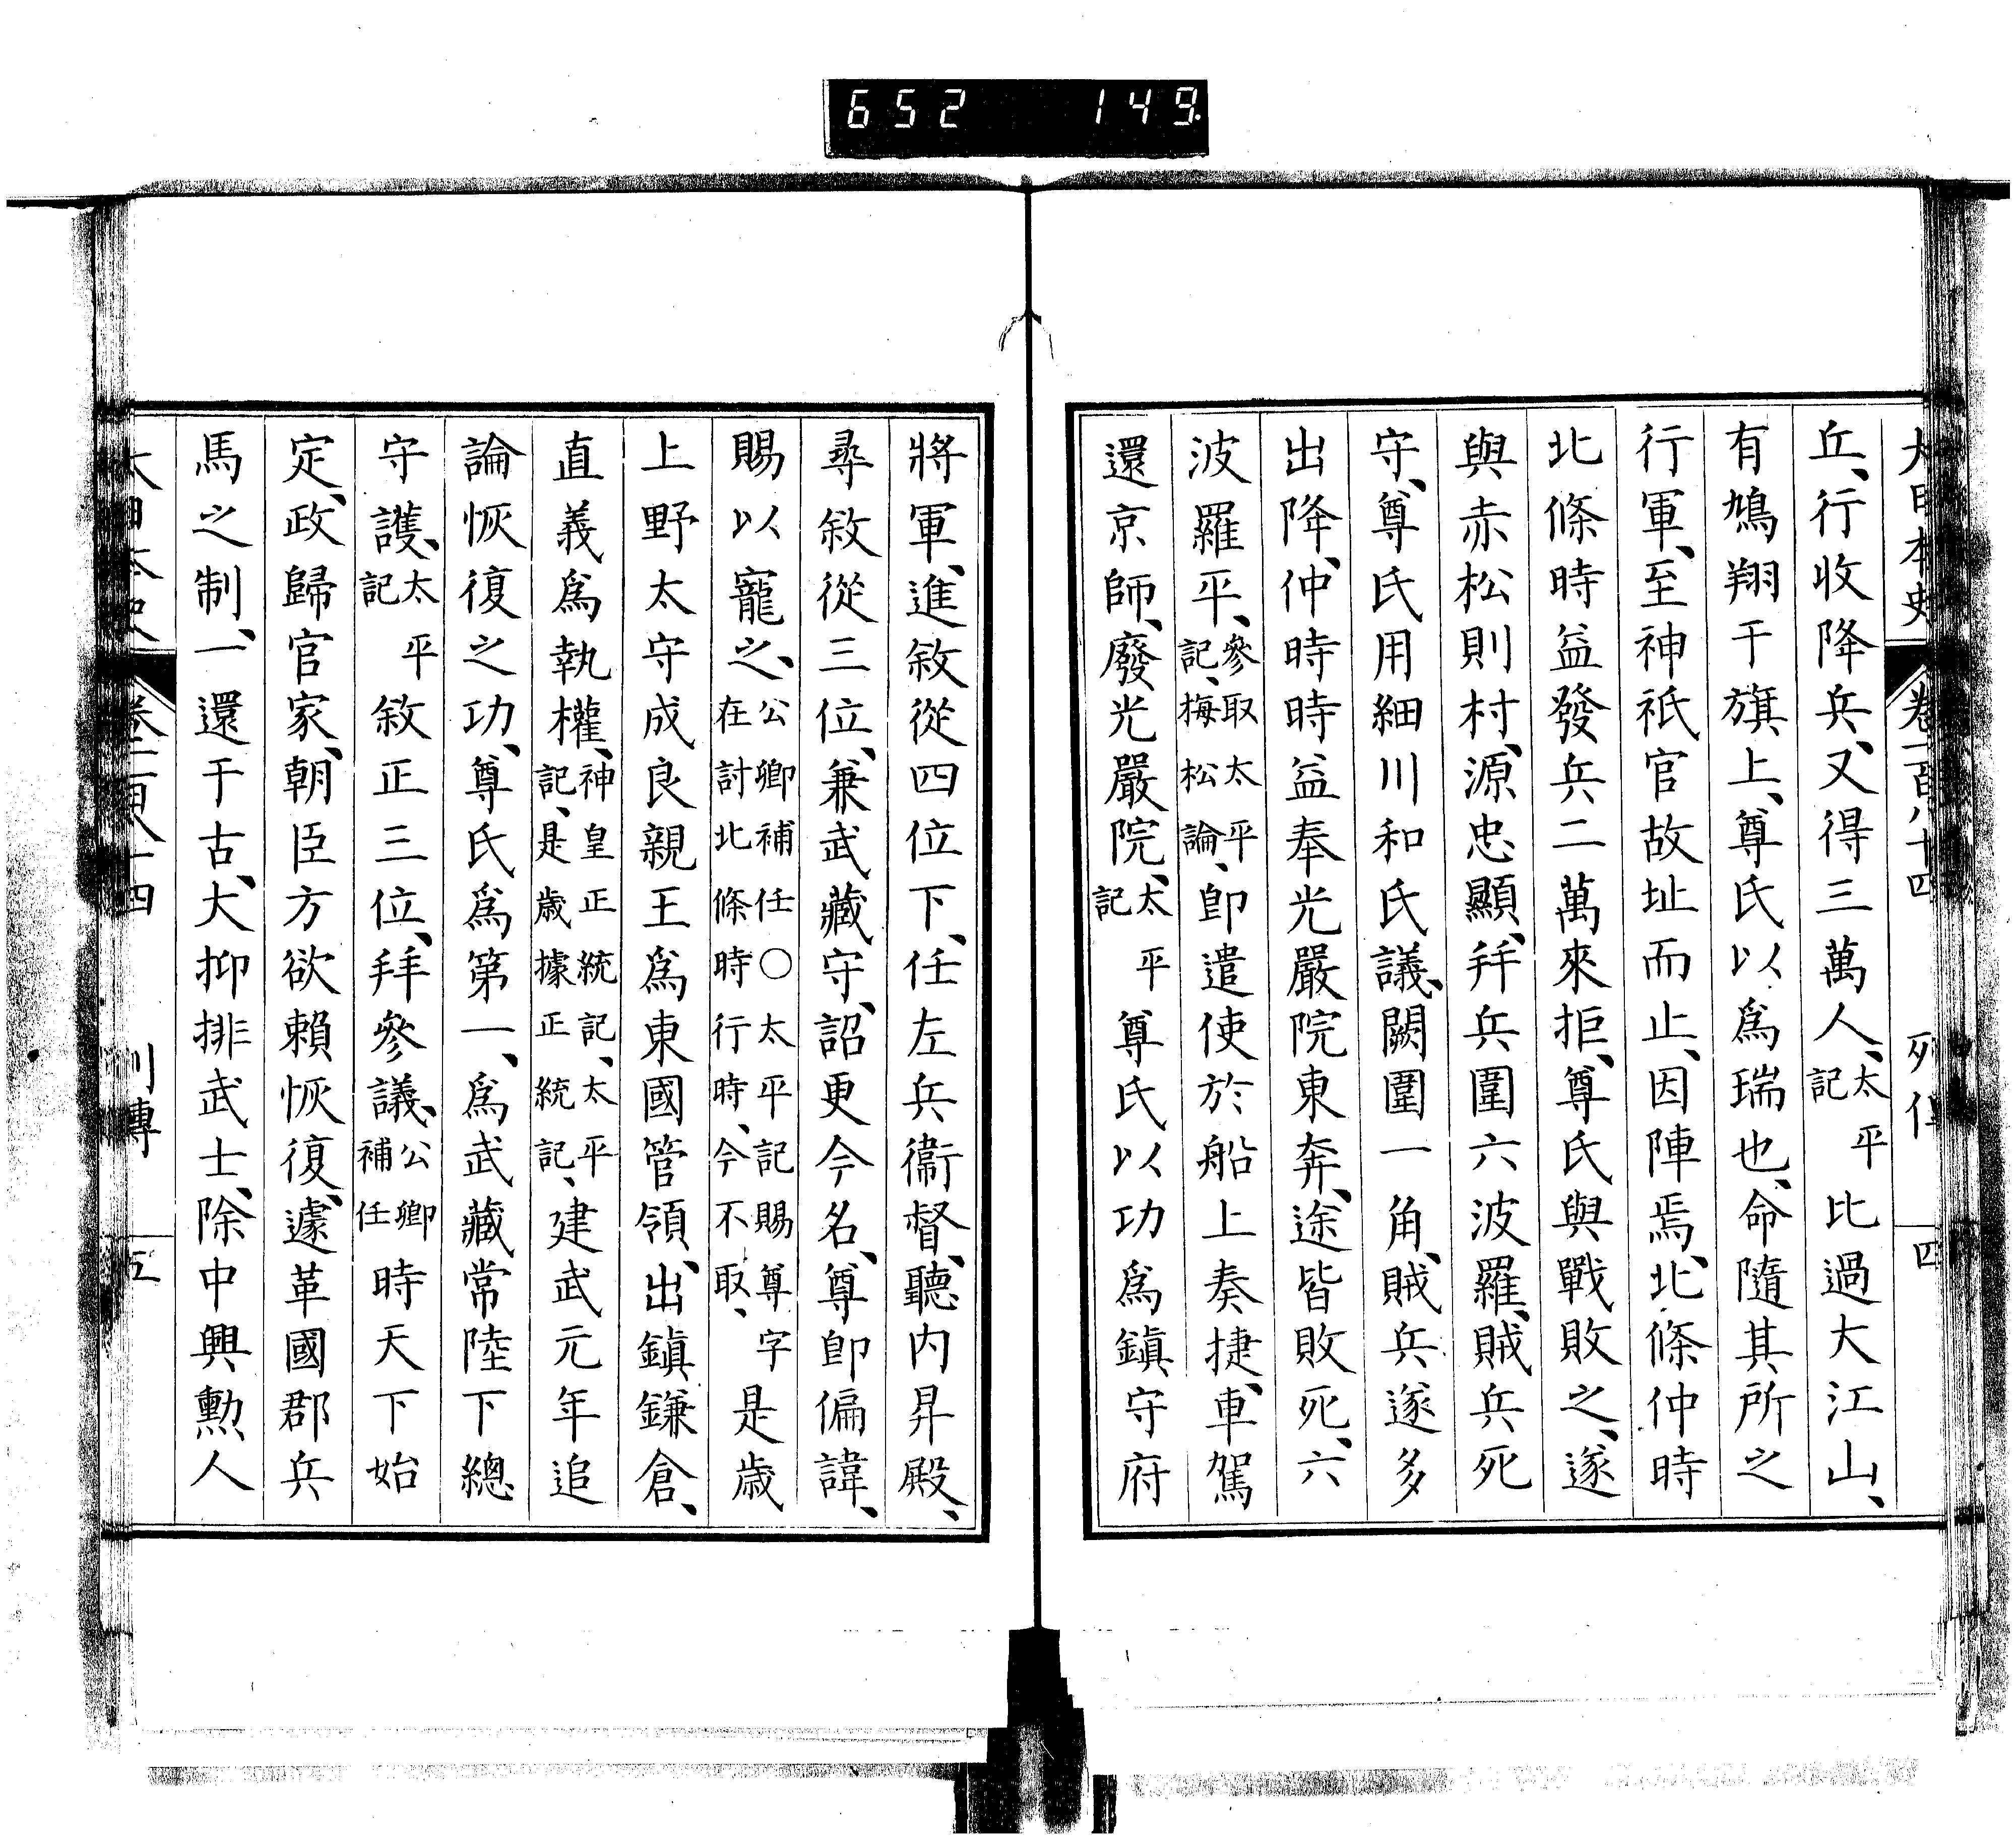 652 149
大日本史 卷一百八十四 列傳 四
兵、行收降兵、又得三萬人、太平記 比過大江山、
有鳩翔于旗上、尊氏以爲瑞也、命隨其所之
行軍、至神祇官故址而止、因陣焉、北條仲時
北條時益發兵二萬來拒、尊氏與戰敗之、遂
與赤松則村、源忠顯、幷兵圍六波羅、賊兵死
守、尊氏用細川和氏議、闕圍一角、賊兵遂多
出降、仲時時益奉光嚴院東奔、途皆敗死、六
波羅平、參取太平記、梅松論、卽遣使於船上奏捷、車駕
還京師、廢光嚴院、太平記 尊氏以功爲鎭守府
將軍、進敘從四位下、任左兵衞督、聽内昇殿、
尋敘從三位、兼武藏守、詔更今名、尊卽偏諱、
賜以寵之、公卿補任○太平記賜尊字在討北條時行時、今不取、是歲
上野太守成良親王爲東國管領、出鎭鎌倉、
直義爲執權、神皇正統記、太平記、是歲據正統記、建武元年追
論恢復之功、尊氏爲第一、爲武藏常陸下總
守護、太平記 敘正三位、拜參議、公卿補任 時天下始
定、政歸官家、朝臣方欲賴恢復、遽革國郡兵
馬之制、一還于古、大抑排武士、除中興勳人
大日本史 卷一百八十四 列傳 五